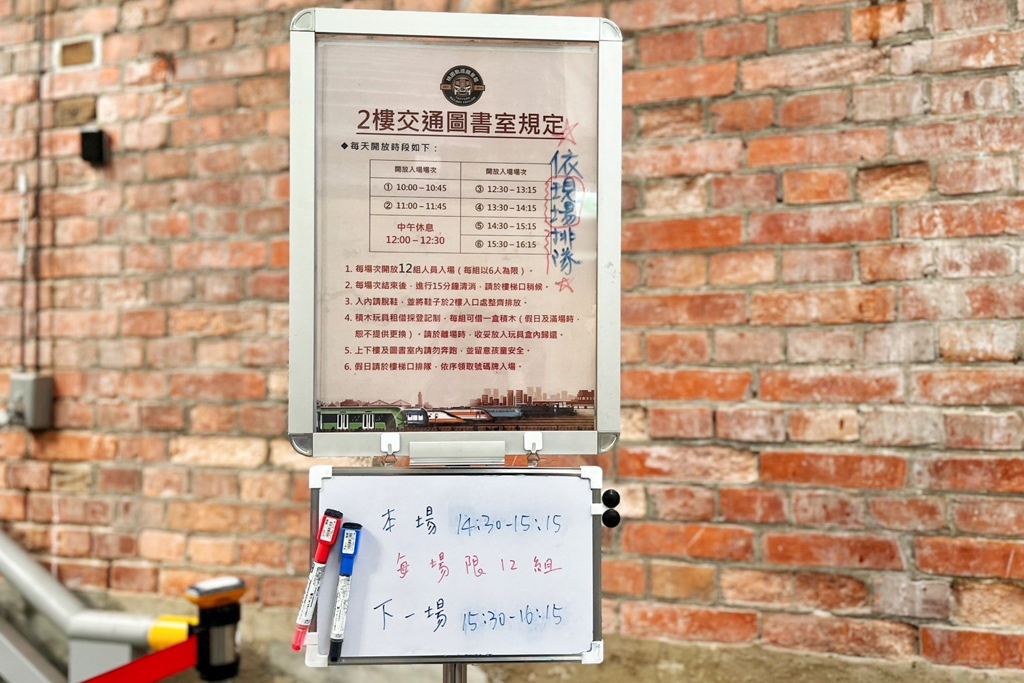 2樓交通圖書室規定
◆每天開放時段如下：
開放入場場次 開放入場場次
① 10:00－10:45 ③ 12:30－13:15
② 11:00－11:45 ④ 13:30－14:15
中午休息 ⑤ 14:30－15:15
12:00－12:30 ⑥ 15:30－16:15
依現場排隊
1. 每場次開放12組人員入場（每組以6人為限）。
2. 每場次結束後，進行15分鐘清消，請於樓梯口稍候。
3. 入內請脫鞋，並將鞋子於2樓入口處整齊排放。
4. 積木玩具租借採登記制，每組可借一盒積木（假日及滿場時，
恕不提供更換）。請於離場時，收妥放入玩具盒內歸還。
5. 上下樓及圖書室內請勿奔跑，並留意孩童安全。
6. 假日請於樓梯口排隊，依序領取號碼牌入場。
本場 14:30-15:15
每場限12組
下一場 15:30-16:15